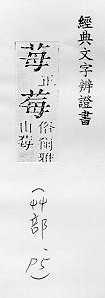 經典文字辨證書
苺正
莓俗爾雅
山莓
(艸部、P5)